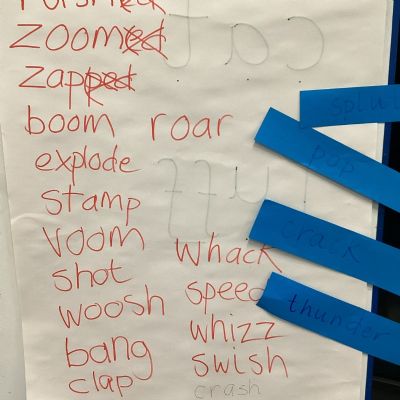 zoomed
zapped
boom roar
explode
stamp
voom whack
shot
woosh speed
whizz
bang swish
clap crash
pop
crack
thunder